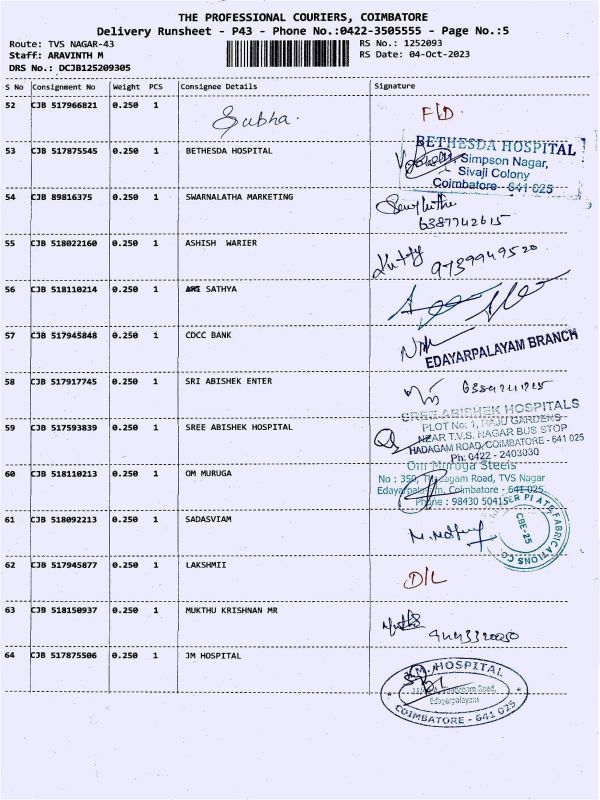 THE PROFESSIONAL COURIERS, COIMBATORE
Delivery Runsheet - P43 - Phone No.:0422-3505555 - Page No.:5
Route: TVS NAGAR-43 RS No.: 1252093
Staff: ARAVINTH M RS Date: 04-Oct-2023
DRS No.: DCJB125209305
S No Consignment No Weight PCS Consignee Details Signature
52 CJB 517966821 0.250 1 Subha. F/D.
53 CJB 517875545 0.250 1 BETHESDA HOSPITAL
BETHESDA HOSPITAL
Simpson Nagar,
Sivaji Colony
Coimbatore - 641 025
54 CJB 89816375 0.250 1 SWARNALATHA MARKETING
6387742615
55 CJB 518022160 0.250 1 ASHISH WARIER
9739949520
56 CJB 518110214 0.250 1 SATHYA
57 CJB 517945848 0.250 1 CDCC BANK
EDAYARPALAYAM BRANCH
58 CJB 517917745 0.250 1 SRI ABISHEK ENTER
59 CJB 517593839 0.250 1 SREE ABISHEK HOSPITAL
SREE ABISHEK HOSPITALS
PLOT No: 1, RAJU GARDENS
NEAR T.V.S. NAGAR BUS STOP
HADAGAM ROAD, COIMBATORE - 641 025
Ph: 0422 - 2403030
60 CJB 518110213 0.250 1 OM MURUGA
Om Muruga Steels
No : 350, Road, TVS Nagar
Edayarpalayam, Coimbatore - 641 025
Phone : 98430 50415
61 CJB 518092213 0.250 1 SADASVIAM
PLATE FABRICATIONS CO
CBE-25
62 CJB 517945877 0.250 1 LAKSHMII D/L
63 CJB 518150937 0.250 1 MUKTHU KRISHNAN MR
9443320050
64 CJB 517875506 0.250 1 JM HOSPITAL
HOSPITAL
Road,
Edayarpalayam
COIMBATORE - 641 025